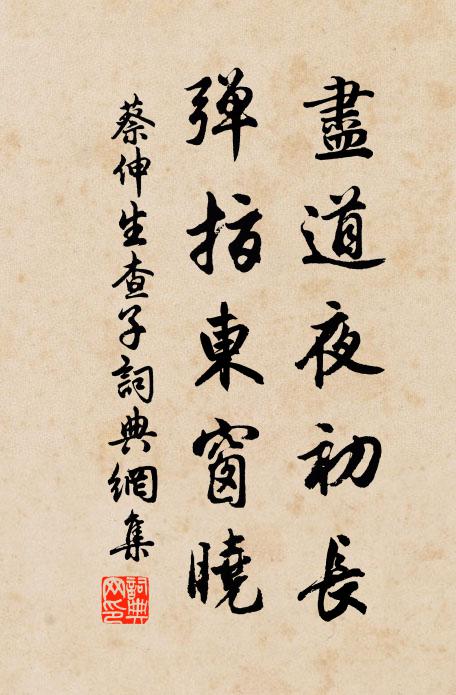 盡道夜初長
彈指東窗曉
蔡伸生查子詞典網集
詞典網印